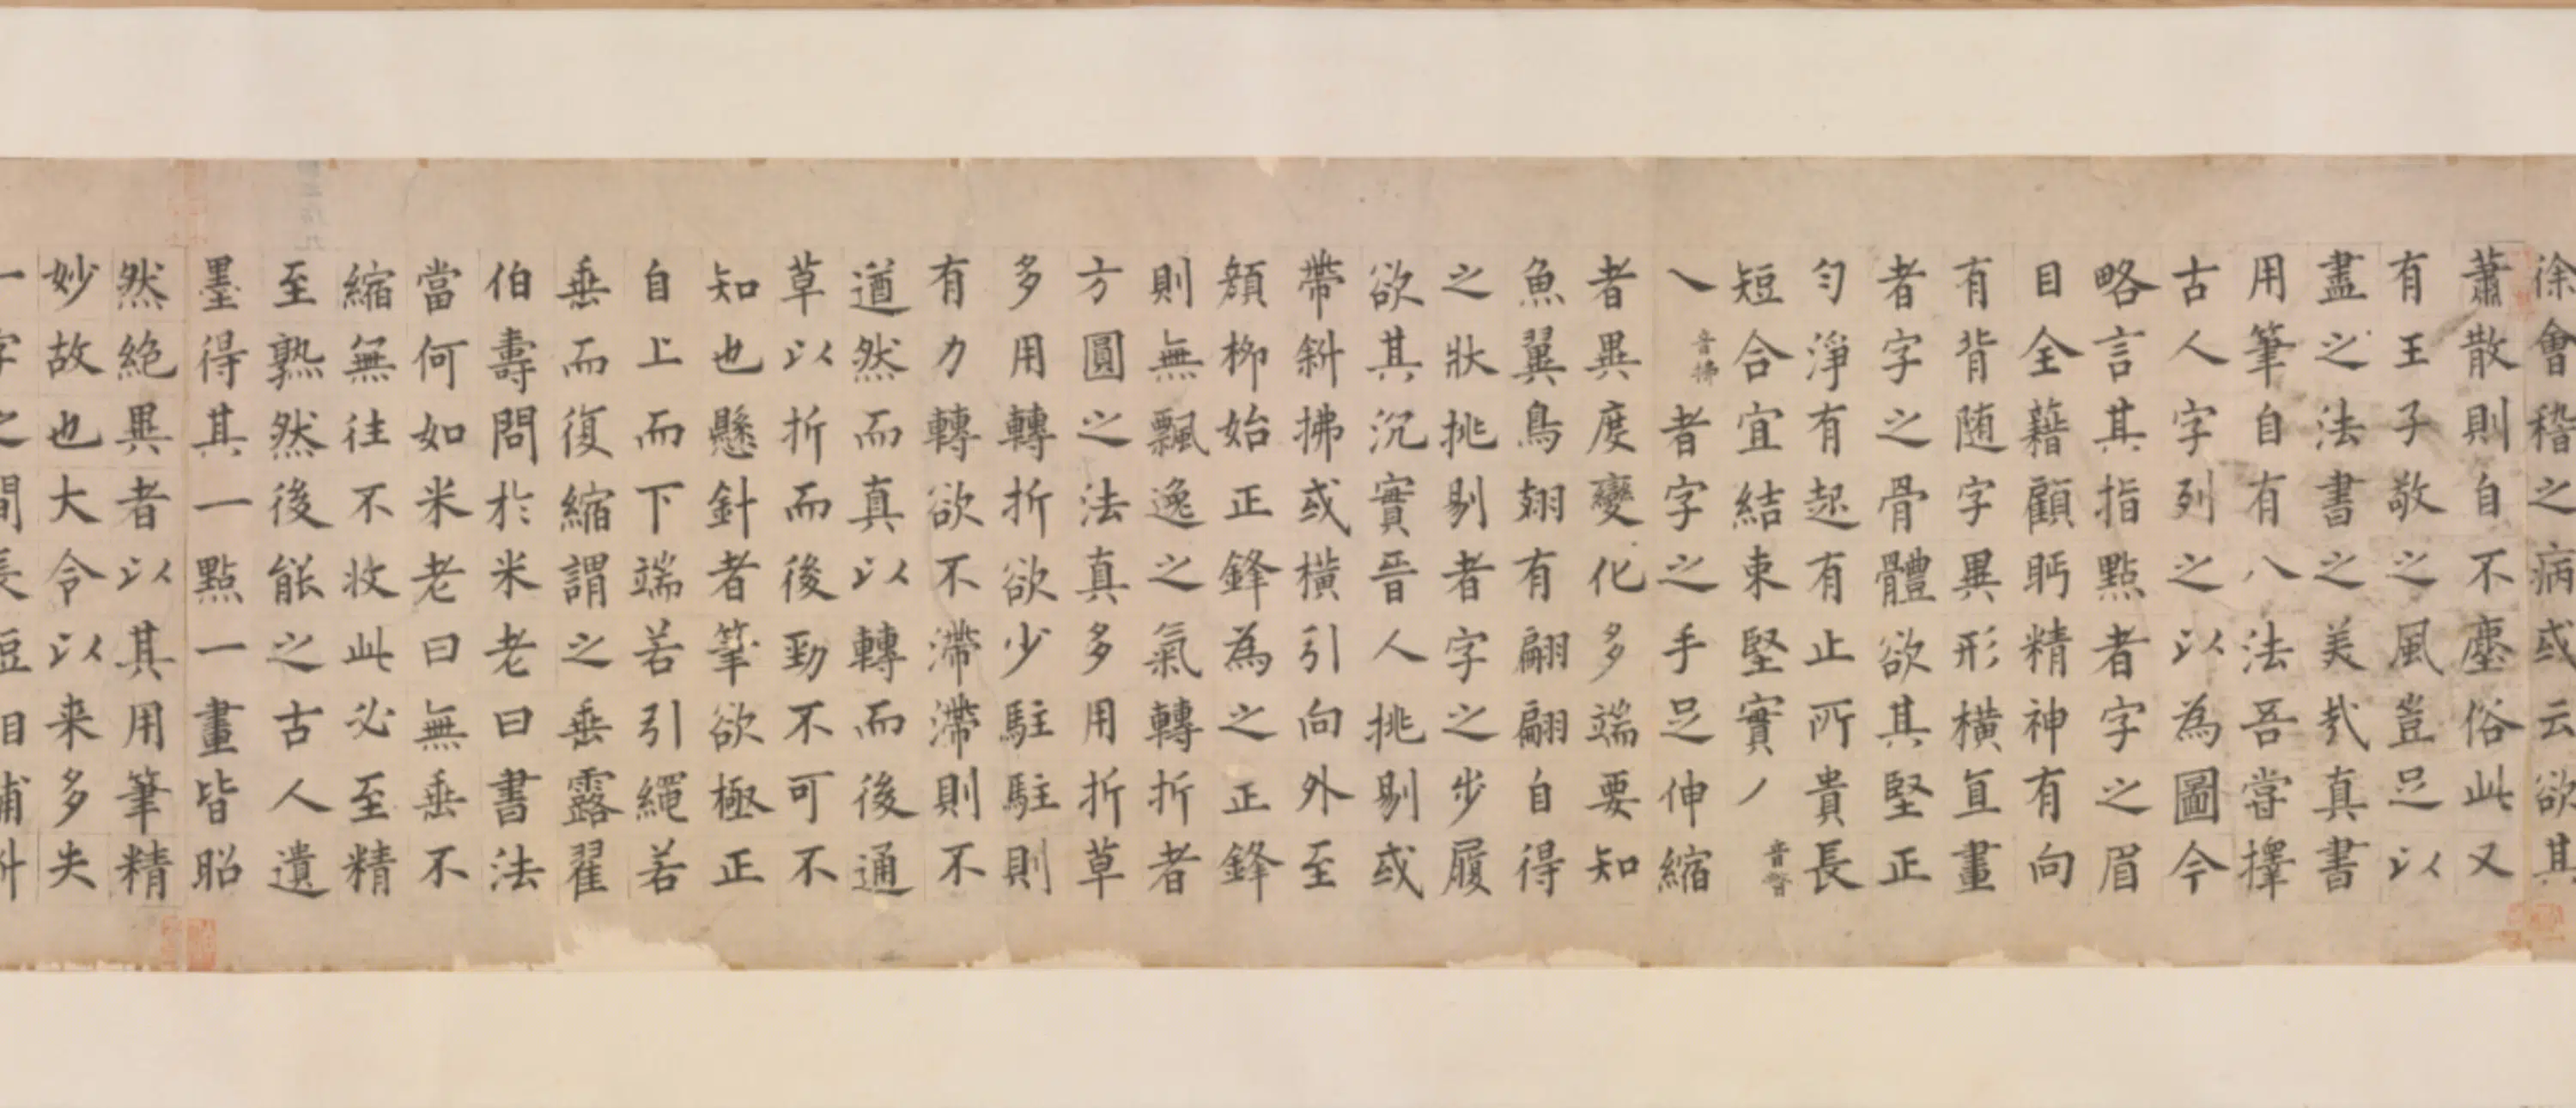 徐會稽之病或云欲其
蕭散則自不塵俗此又
有王子敬之風豈足以
盡之法書之美哉真書
用筆自有八法吾嘗擇
古人字列之以為圖今
略言其指點者字之眉
目全藉顧眄精神有向
有背随字異形橫直畫
者字之骨體欲其堅正
勻淨有起有止所貴長
短合宜結束堅實丿音瞥
乀音拂者字之手足伸縮
者異度變化多端要知
魚翼鳥翅有翩翩自得
之狀挑剔者字之步履
欲其沉實晉人挑剔或
帶斜拂或橫引向外至
顏柳始正鋒為之正鋒
則無飄逸之氣轉折者
方圓之法真多用折草
多用轉折欲少駐駐則
有力轉欲不滯滯則不
遒然而真以轉而後通
草以折而後勁不可不
知也懸針者筆欲極正
自上而下端若引繩若
垂而復縮謂之垂露翟
伯壽問於米老曰書法
當何如米老曰無垂不
縮無往不收此必至精
至熟然後能之古人遺
墨得其一點一畫皆昭
然絕異者以其用筆精
妙故也大令以来多失
一字之間長短相補斜